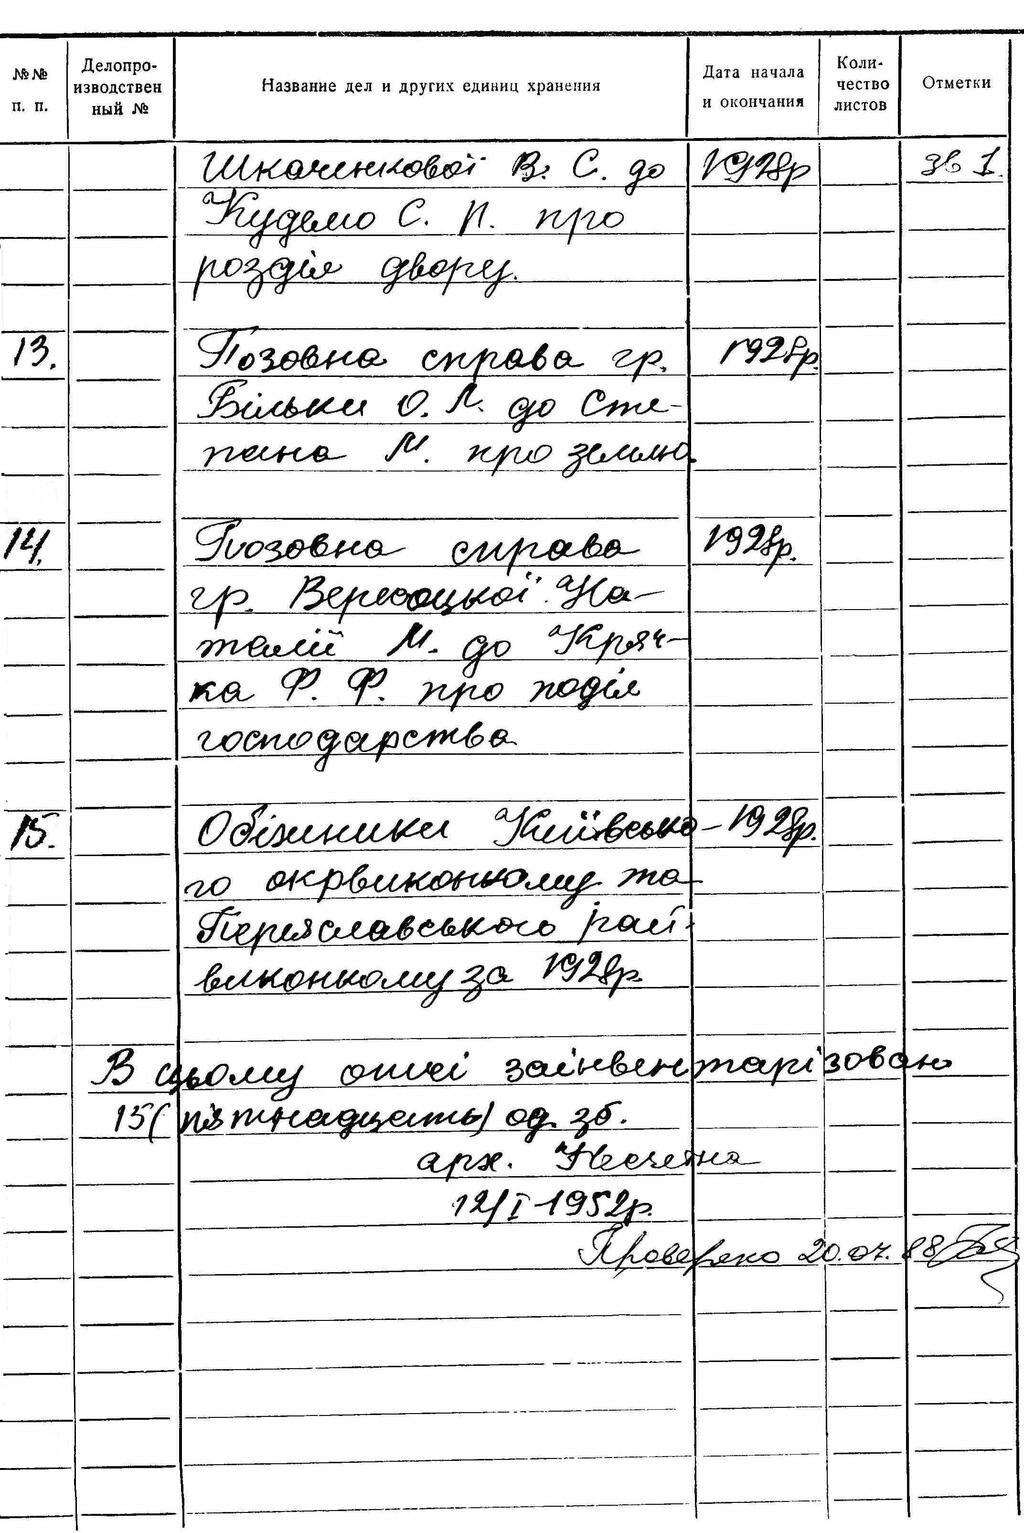 №№ п. п.
Делопро-изводствен ный №
Название дел и других единиц хранения
Дата начала и окончания
Коли-чество листов
Отметки
Шкаченкової В. С. до 1928р зв 1
Кудемо С. П. про
розділ двору.
13. Позовна справа гр. 1928р.
Більки О. Л. до Сте-
пана М. про землю.
14. Позовна справа 1928р.
гр. Вересоцької На-
талії М. до Кряч-
ка Ф. Ф. про поділ
господарства
15. Обіжники Київсько- 1928р.
го окрвиконкому та
Переяславського рай-
виконкому за 1928р.
В цьому описі заінвентарізован
15 (п'ятнадцать) од. зб.
арх. Несчетна
12/I-1952р.
Проверено 20.07.88